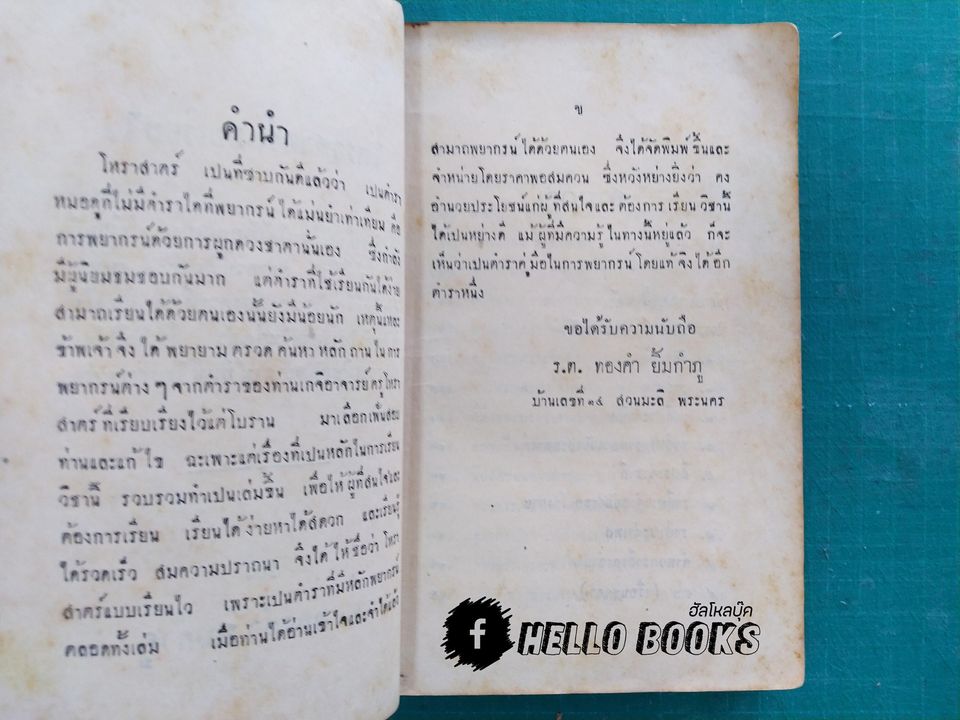 คำนำ
โหราสาตร์ เปนที่ซาบกันดีแล้วว่า เปนตำรา
หมอดูที่ไม่มีตำราไดที่พยากรน์ได้แม่นยำเท่าเทียน คือ
การพยากรน์ด้วยการผูกดวงชาตานั้นเอง ซึ่งกำลัง
มีผู้นิยมชมชอบกันมาก แต่ตำราที่ไช้เรียนกันได้ง่าย
สามาถเรียนได้ด้วยตนเองนั้นยังมีน้อยนัก เหตุนี้แหละ
ข้าพเจ้าจึงได้พยายามตรวดค้นหาหลักถานไนการ
พยากรน์ต่าง ๆ จากตำราของท่านเกจิอาจารย์ครูโหรา
สาตร์ที่เรียบเรียงไว้แต่โบราน มาเลือกเฟ้นสอบ
ทานและแก้ไข ฉะเพาะแต่เรื่องที่เปนหลักในการเรียน
วิชานี้ รวบรวมทำเปนเล่มขึ้น เพื่อไห้ผู้ที่สนใจและ
ต้องการเรียน เรียนได้ง่ายหาได้สดวก และเรียนรู้
ได้รวดเร็ว สมความปราถนา จึงได้ไห้ชื่อว่า โหรา
สาตร์แบบเรียนไว เพราะเปนตำราที่มีหลักพยากรน์
ตลอดทั้งเล่ม เมื่อท่านได้อ่านเข้าใจและจำได้แล้ว
ข
สามาถพยากรน์ได้ด้วยตนเอง จึงได้จัดพิมพ์ขึ้นและ
จำหน่ายโดยราคาพอสมควน ซึ่งหวังหย่างยิ่งว่า คง
อำนวยประโยชน์แก่ผู้ที่สนใจและต้องการเรียนวิชานี้
ได้เปนหย่างดี แม้ผู้ที่มีความรู้ในทางนี้หยู่แล้ว ก็จะ
เห็นว่าเปนตำราคู่มือในการพยากรน์โดยแท้จิงได้อีก
ตำราหนึ่ง
ขอได้รับความนับถือ
ร.ต. ทองคำ ยิ้มกำภู
บ้านเลขที่ ๑๔ สวนมะลิ พระนคร
ฮัลโหลบุ๊ค
f HELLO BOOKS